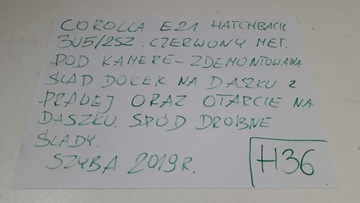 COROLLA E21 HATCHBACK
3U5/2SZ. CZERWONY MET.
POD KAMERE - ZDEMONTOWANA
ŚLAD DOŁEK NA DASZKU z
PRAWEJ ORAZ OTARCIE NA
DASZKU. SPÓD DROBNE
ŚLADY.
SZYBA 2019R.
H36